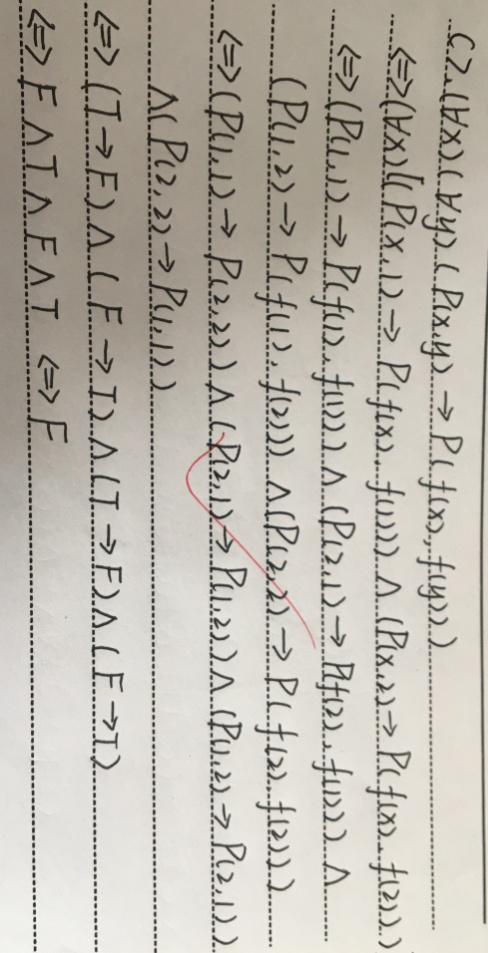 (2).(∀x)(∀y)(P(x,y)→P(f(x),f(y)))
⇔(∀x)[(P(x,1)→P(f(x),f(1)))∧(P(x,2)→P(f(x),f(2)))
⇔(P(1,1)→P(f(1),f(1)))∧(P(2,1)→P(f(2),f(1)))∧
(P(1,2)→P(f(1),f(2)))∧(P(2,2)→P(f(2),f(2)))
⇔(P(1,1)→P(2,2))∧(P(2,1)→P(1,2))∧(P(1,2)→P(2,1))
∧(P(2,2)→P(1,1))
⇔(T→F)∧(F→T)∧(T→F)∧(F→T)
⇔F∧T∧F∧T⇔F